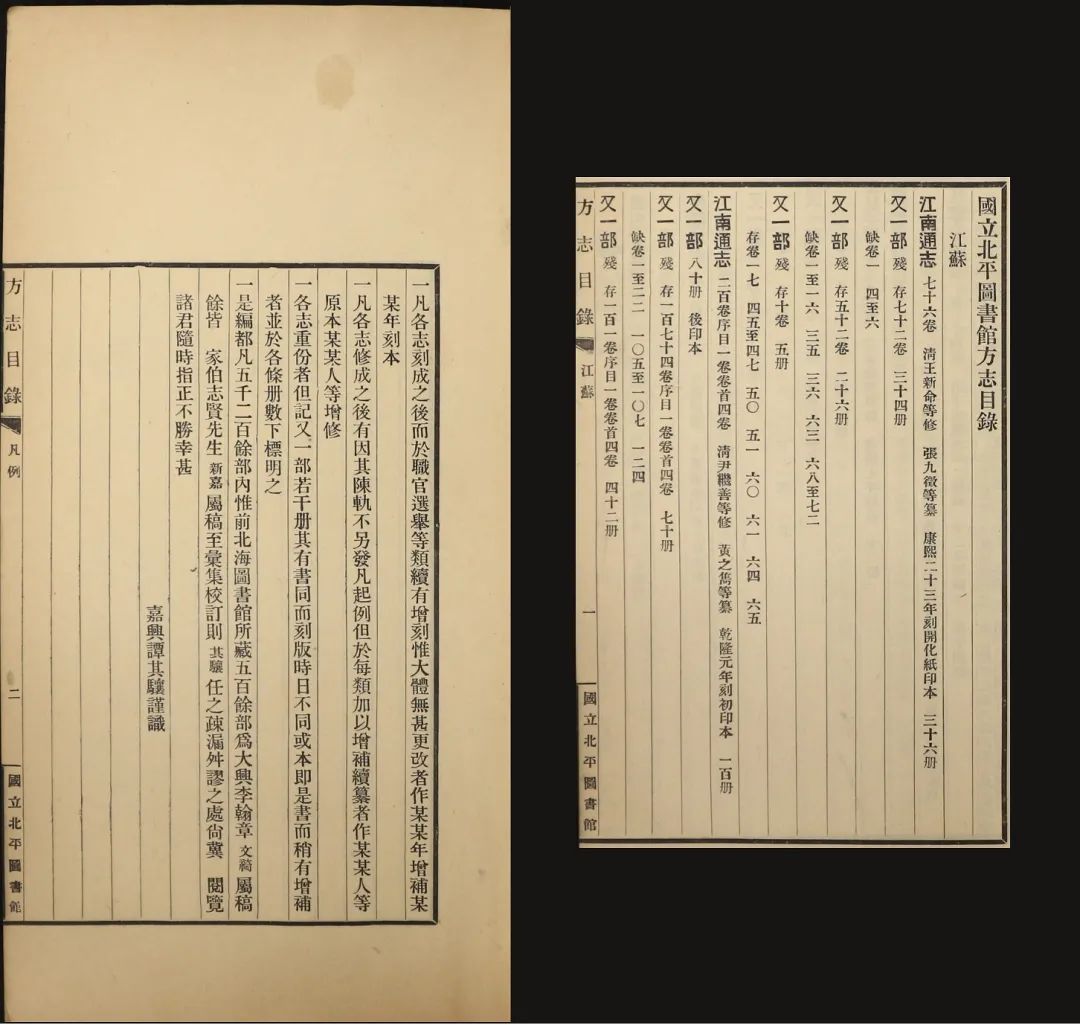 一凡各志刻成之後而於職官選舉等類續有增刻惟大體無甚更改者作某某年增補某
某年刻本
一凡各志修成之後有因其陳軌不另發凡起例但於每類加以增補續纂者作某某人等
原本某某人等增修
一各志重份者但記又一部若干册其有書同而刻版時日不同或本即是書而稍有增補
者並於各條册數下標明之
一是編都凡五千二百餘部內惟前北海圖書館所藏五百餘部爲大興李翰章文䄎屬稿
餘皆 家伯志賢先生新嘉屬稿至彙集校訂則其驤任之疎漏舛謬之處尙冀 閱覽
諸君隨時指正不勝幸甚
嘉興譚其驤謹識
方志目錄 凡例 二 國立北平圖書館
國立北平圖書館方志目錄
江蘇
江南通志 七十六卷 淸王新命等修 張九徵等纂 康熙二十三年刻開化紙印本 三十六册
又一部 殘 存七十二卷 三十四册
缺卷一 四至六
又一部 殘 存五十二卷 二十六册
缺卷一至一六 三五 三六 六三 六八至七二
又一部 殘 存十卷 五册
存卷一七 四五至四七 五〇 五一 六〇 六一 六四 六五
江南通志 二百卷序目一卷卷首四卷 淸尹繼善等修 黃之雋等纂 乾隆元年刻初印本 一百册
又一部 八十册 後印本
又一部 殘 存一百七十四卷序目一卷卷首四卷 七十册
缺卷一至二二 一〇五至一〇七 一二四
又一部 殘 存一百一卷序目一卷卷首四卷 四十二册
方志目錄 江蘇 一 國立北平圖書館